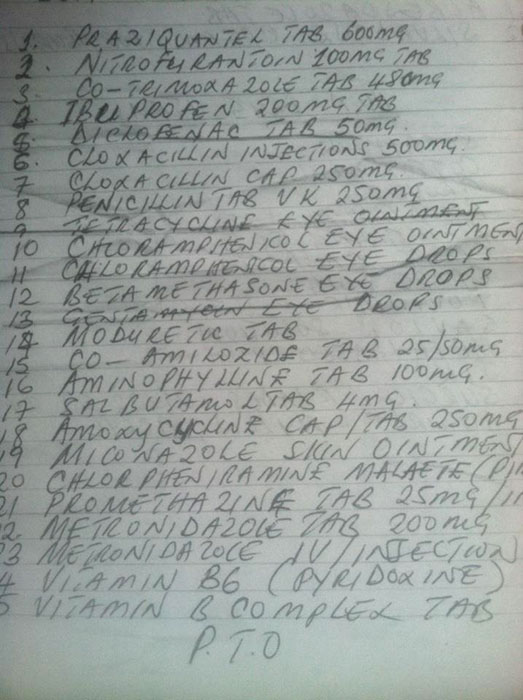 1. PRAZIQUANTEL TAB 600MG
2. NITROFURANTOIN 100MG TAB
3. CO-TRIMOXAZOLE TAB 480MG
4 IBUPROFEN 200MG TAB
5. DICLOFENAC TAB 50MG.
6. CLOXACILLIN INJECTIONS 500MG.
7 CLOXACILLIN CAP 250MG.
8 PENICILLIN TAB VK 250MG
9 TETRACYCLINE EYE OINTMENT
10 CHLORAMPHENICOL EYE OINTMENT
11 CHLORAMPHENICOL EYE DROPS
12 BETAMETHASONE EYE DROPS
13 GENTAMYCIN EYE DROPS
14 MODURETIC TAB
15 CO-AMILOZIDE TAB 25/50MG
16 AMINOPHYLLINE TAB 100MG.
17 SALBUTAMOL TAB 4MG.
18 AMOXYCYCLINE CAP/TAB 250MG
19 MICONAZOLE SKIN OINTMENT
20 CHLORPHENIRAMINE MALAETE (PI
21 PROMETHAZINE TAB 25MG/I
22 METRONIDAZOLE TAB 200MG
23 METRONIDAZOLE IV/INJECTION
4 VITAMIN B6 (PYRIDOXINE)
5 VITAMIN B COMPLEX TAB
P.T.O